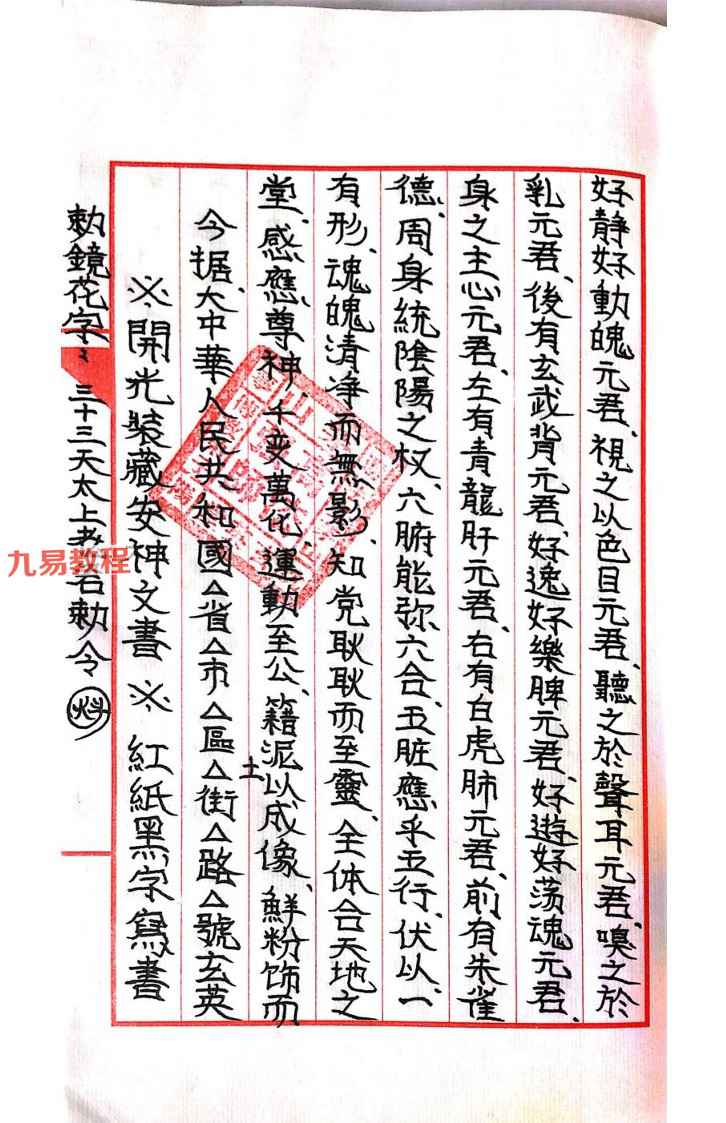 好靜好動魄元君、視之以色目元君、聽之於聲耳元君、嗅之於
乳元君、後有玄武背元君、好逸好樂脾元君、好遊好荡魂元君、
身之主心元君、左有青龍肝元君、右有白虎肺元君、前有朱雀
德、周身統陰陽之权、六腑能弥六合、五脏應乎五行、伏以、一
有形、魂魄清净而無影、知党耿耿而至靈、全体合天地之
堂、感應尊神、千变萬化、運動至公、籍泥土以成像、鮮粉饰而
今据大中華人民共和國△省△市△區△街△路△號玄英
※開光装藏安神文書※ 紅紙黑字寫書
勅鏡花字：三十三天太上老君勅令
九易教程